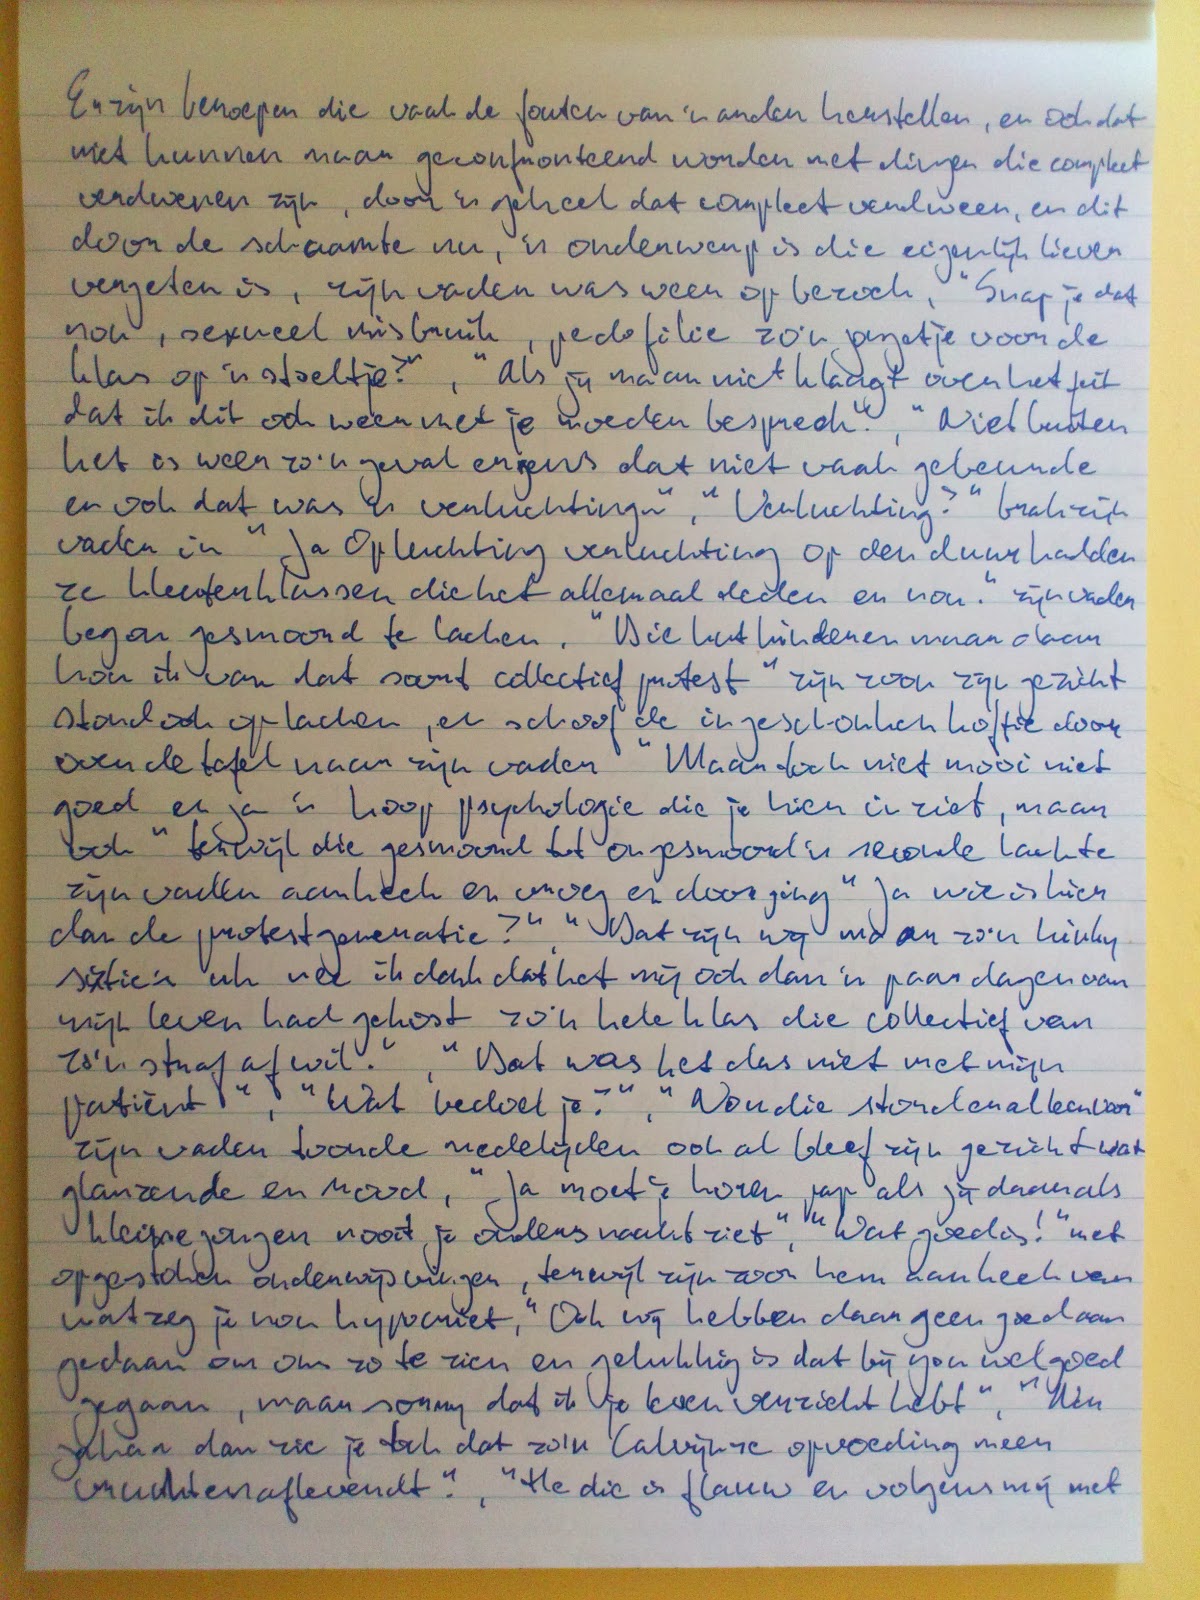 Er zijn beroepen die vaak de fouten van 'n ander herstellen, en ook dat
niet kunnen maar geconfronteerd worden met dingen die compleet
verdwenen zijn, door 'n geheel dat compleet verdween, en dit
door de schaamte nu, 'n onderwerp is die eigenlijk liever
vergeten is, zijn vader was weer op bezoek, "Snap je dat
nou, sexueel misbruik, pedofilie zo'n jongetje voor de
klas op 'n stoeltje?", "Als jij maar niet klaagt over het feit
dat ik dit ook weer met je moeder bespreek", "Niet buiten
het is weer zo'n geval ergens dat niet vaak gebeurde
en ook dat was 'n verluchting", "Verluchting?" brak zijn
vader in "Ja Opluchting verluchting op den duur hadden
ze kleuterklassen die het allemaal deden en nou." zijn vader
begon gesmoord te lachen. "Die kutkinderen maar daar
hou ik van dat soort collectief protest" zijn zoon zijn gezicht
stond ook op lachen, en schoof de ingeschonken koffie door
over de tafel naar zijn vader "Maar toch niet mooi niet
goed en ja 'n hoop psychologie die je hier in ziet, maar
ook" terwijl die gesmoord tot ongesmoord 'n seconde lachte
zijn vader aankeek en vroeg en doorging "Ja wie is hier
dan de protestgeneratie?", "Dat zijn wij maar zo'n kinky
sixtie's uh nee ik denk dat het mij ook dan 'n paar dagen van
mijn leven had gekost zo'n hele klas die collectief van
zo'n straf af wil.", "Dat was het dus niet met mijn
patiënt", "Wat bedoel je?", "Nou die stond er alleen voor"
zijn vader toonde medelijden ook al bleef zijn gezicht wat
glanzende en rood, "Ja moet je horen pap als jij daar als
kleine jongen nooit je ouders naakt ziet", "Wat goed is!" met
opgestoken onderwijsvinger, terwijl zijn zoon hem aankeek van
wat zeg je nou hypocriet, "Ook wij hebben daar geen goed aan
gedaan om ons zo te zien en gelukkig is dat bij jou wel goed
gegaan, maar sorry dat ik je toen verzicht hebt", "Nou
dan zie je toch dat zo'n Calvijnse opvoeding meer
vruchten aflevert", "He die is flauw en volgens mij met